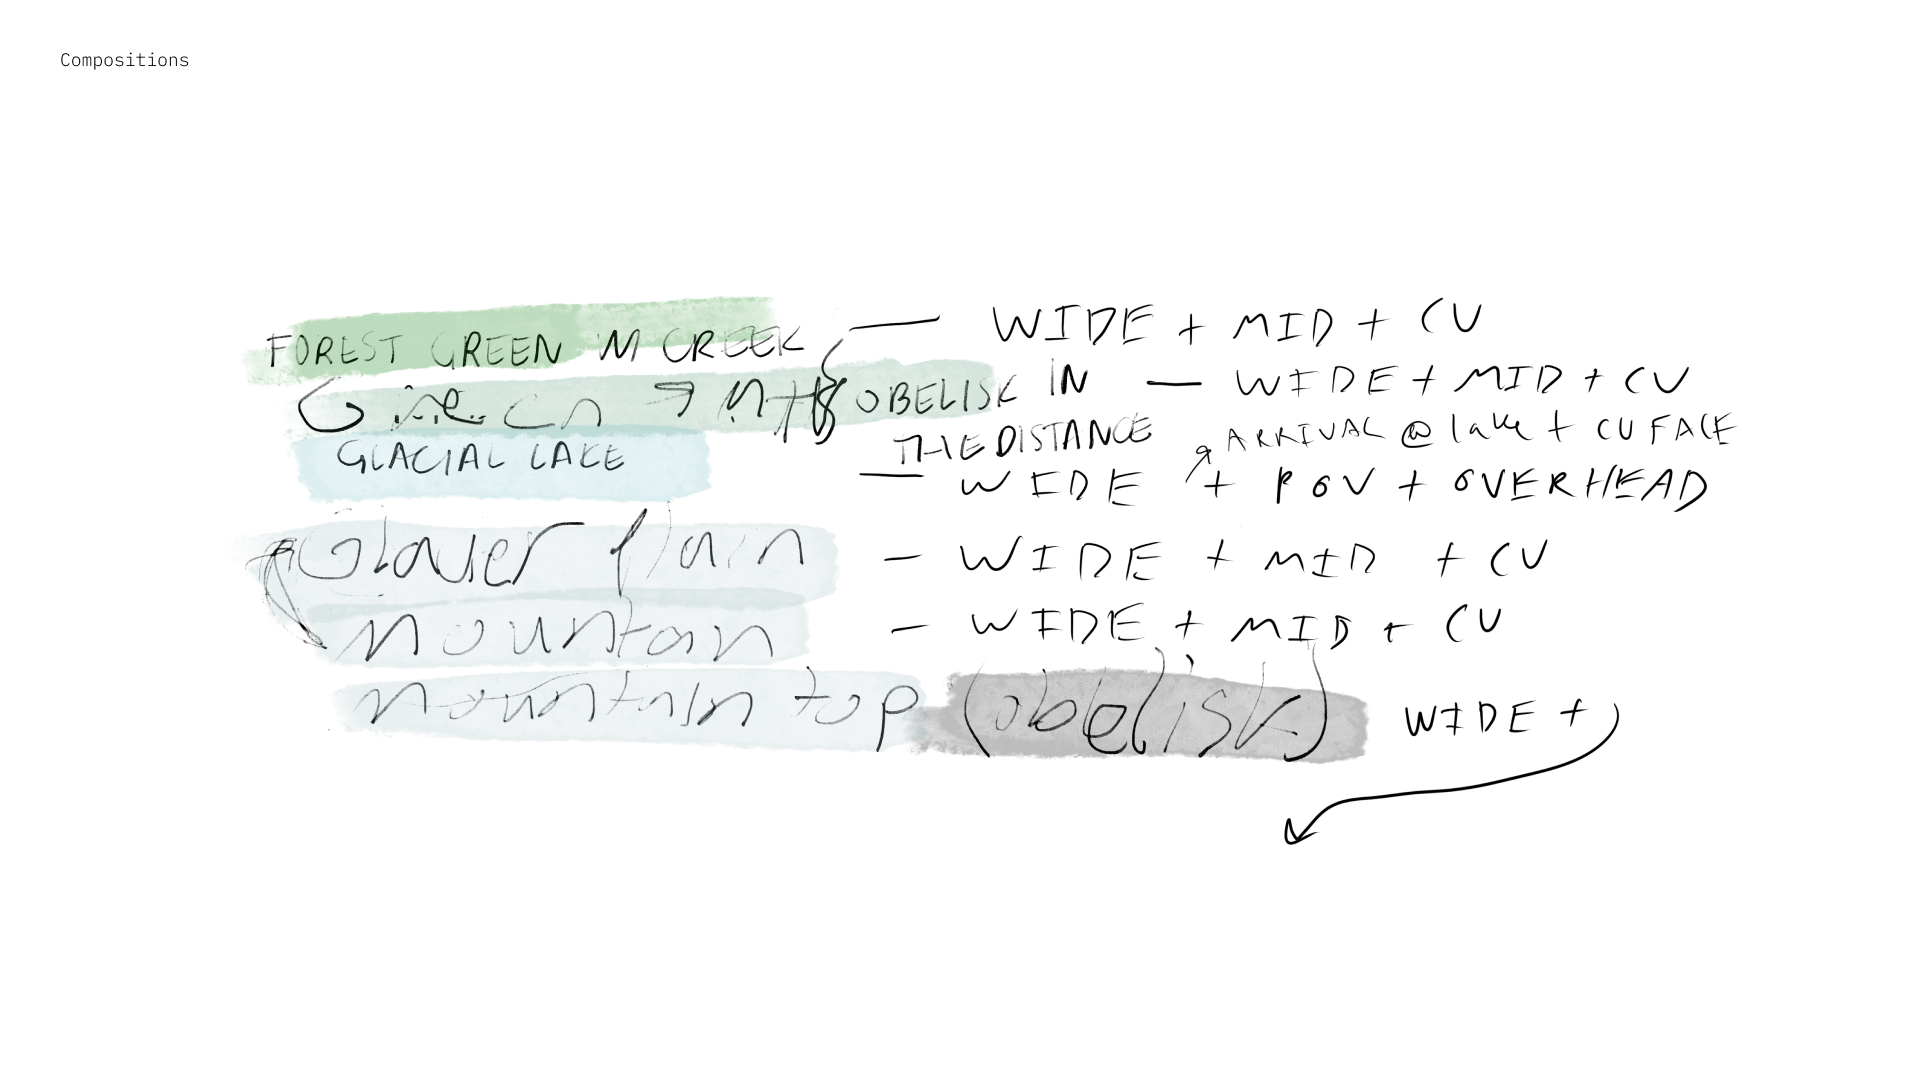 Compositions
FOREST GREEN W CREEK — WIDE + MID + CU
OBELISK IN THE DISTANCE — WIDE + MID + CU
ARRIVAL @ lake + CU FACE
GLACIAL LAKE — WIDE + POV + OVERHEAD
plain - WIDE + MID + CU
Mountain - WIDE + MID + CU
Mountain top (obelisk) WIDE +